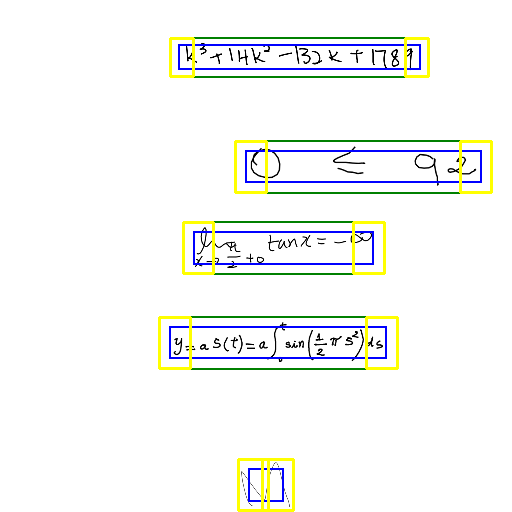 k³+14k²-132k+1789
0 ≤ 92
lim x→π/2+0 tan x = -∞
y = a S(t) = a∫₀ᵗ sin(½πs²)ds